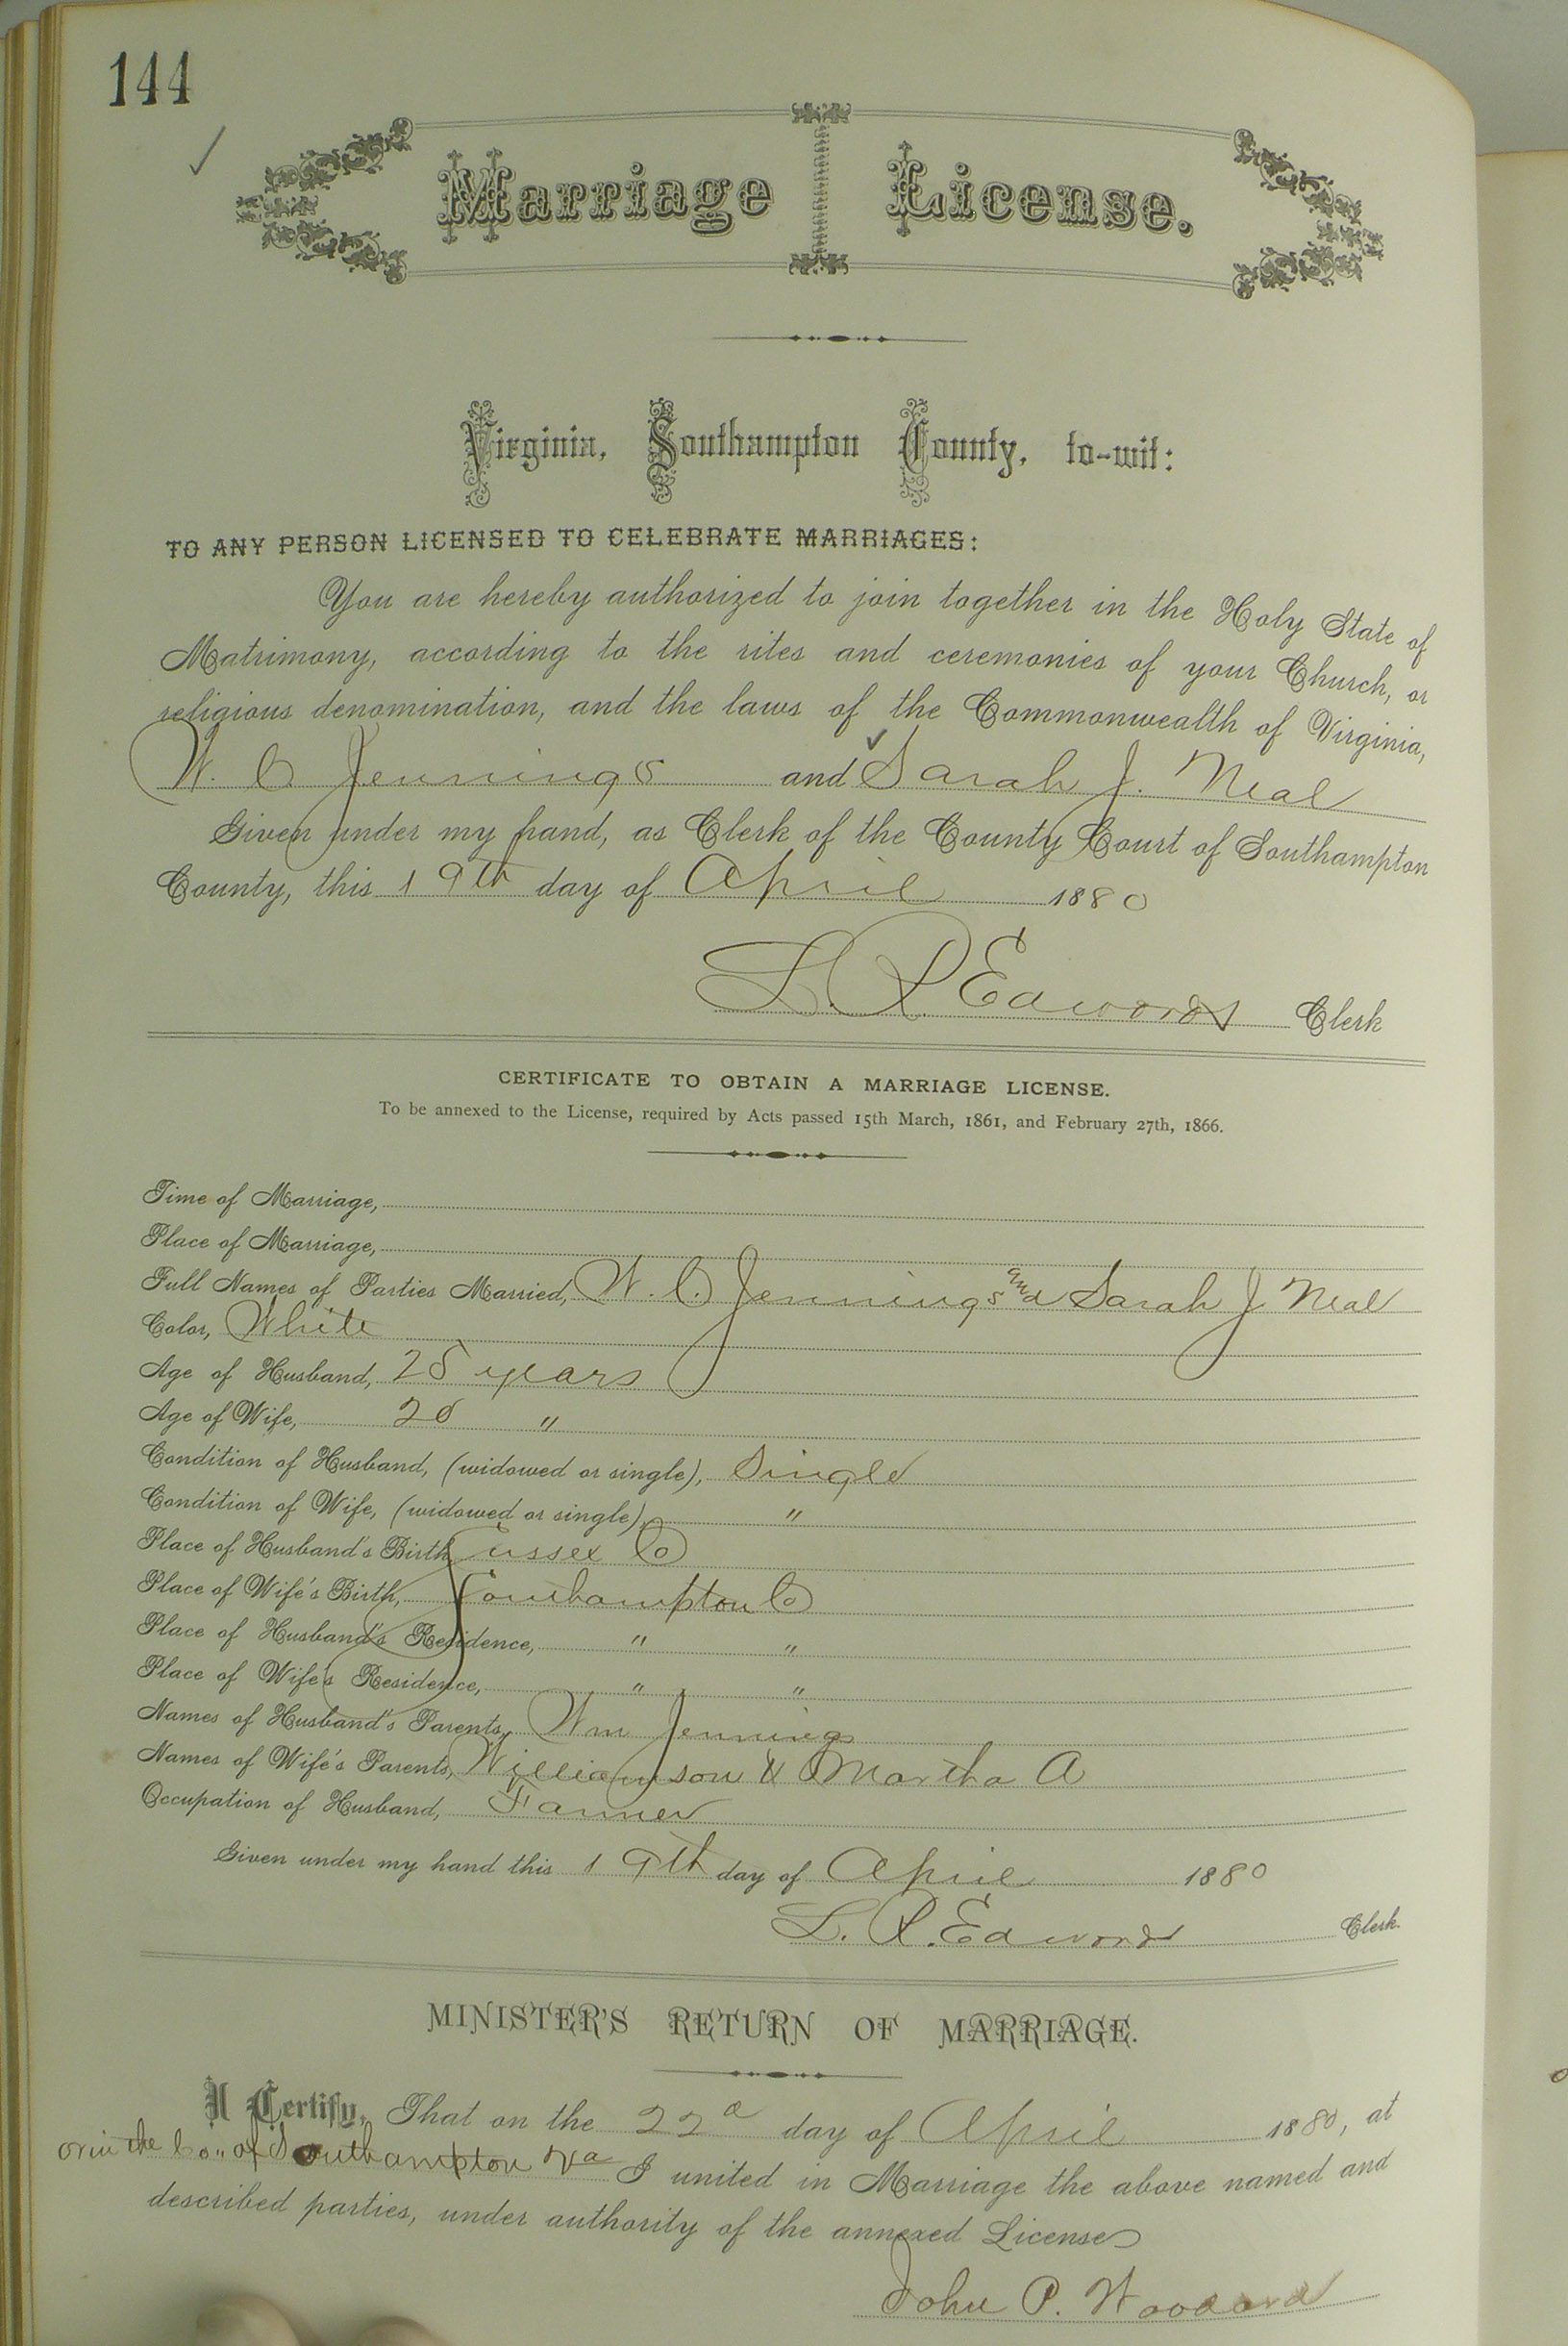 144
Marriage License.
Virginia, Southampton County, to-wit:
TO ANY PERSON LICENSED TO CELEBRATE MARRIAGES:
You are hereby authorized to join together in the Holy State of
Matrimony, according to the rites and ceremonies of your Church, or
religious denomination, and the laws of the Commonwealth of Virginia,
W. C. Jennings and Sarah J. Neal
Given under my hand, as Clerk of the County Court of Southampton
County, this 19th day of April 1880
L. R. Edwards Clerk
CERTIFICATE TO OBTAIN A MARRIAGE LICENSE.
To be annexed to the License, required by Acts passed 15th March, 1861, and February 27th, 1866.
Time of Marriage,
Place of Marriage,
Full Names of Parties Married, W. C. Jennings and Sarah J Neal
Color, White
Age of Husband, years
Age of Wife, "
Condition of Husband, (widowed or single), Single
Condition of Wife, (widowed or single), "
Place of Husband's Birth, Sussex Co
Place of Wife's Birth, Southampton Co
Place of Husband's Residence, " "
Place of Wife's Residence, " "
Names of Husband's Parents, Wm Jennings
Names of Wife's Parents, Williamson & Martha A
Occupation of Husband, Farmer
Given under my hand this 19th day of April 1880
L. R. Edwards Clerk.
MINISTER'S RETURN OF MARRIAGE.
I Certify, That on the 22d day of April 1880, at
or in the Co.. of Southampton Va I united in Marriage the above named and
described parties, under authority of the annexed License
John P. Woodard